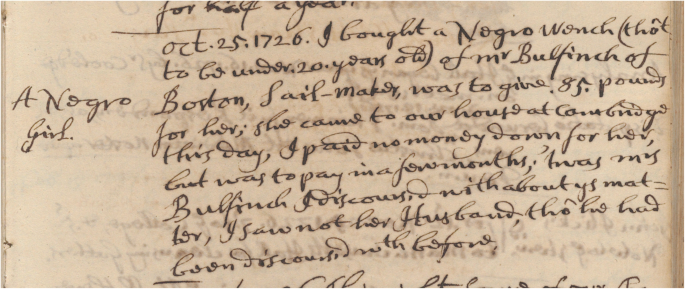 for half a year.
Oct. 25. 1726. I bought a Negro Wench (thôt
to be under. 20. years old) of mr Bulfinch of
A Negro Girl.
Boston, Sail-maker, was to give. 85. pounds
for her; she came to our house at Cambridge
this day, I paid no money down for her,
but was to pay in a few months; 'twas mrs
Bulfinch I discoursd with about ys mat=
ter, I saw not her Husband, thô he had
been discoursd wth before.